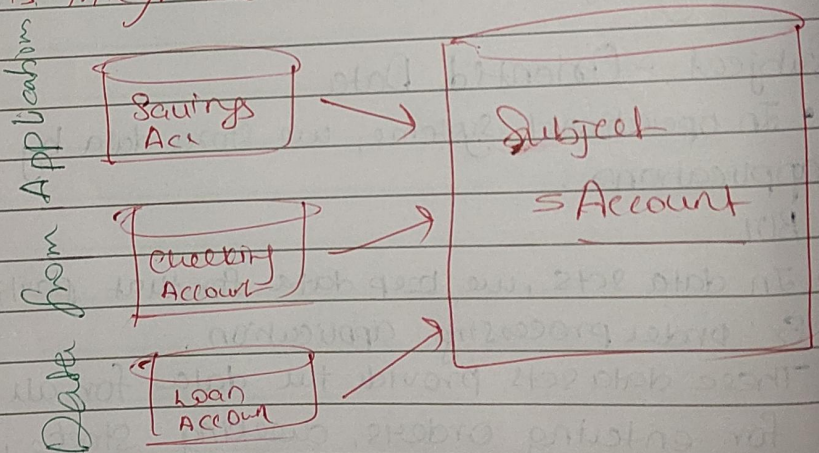 Data from Application
Savings
Acc
Checking
Account
Loan
Account
Subject
= Account